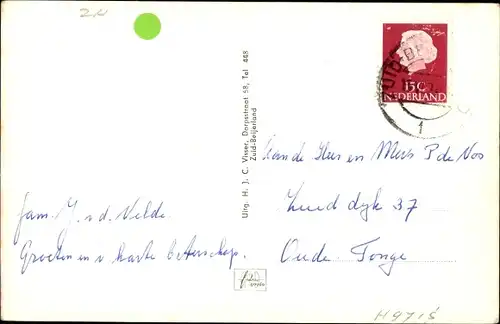 ZH
fam. J. v. d. Velde.
Groeten en v harte beterschap.
Uitg. H. J. C. Visser, Dorpsstraat 58, Tel 448
Zuid-Beijerland
15C
NEDERLAND
1
aan de Heer en Mevr P de Vos
Zuiddyk 37
Oude-Tonge
H9715